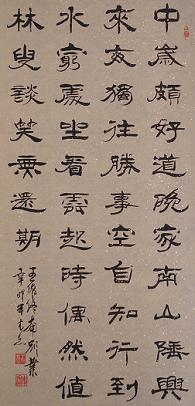 中歲頗好道晚家南山陲興
來每獨往勝事空自知行到
水窮處坐看雲起時偶然值
林叟談笑無還期
王維終南別業
辛卯年